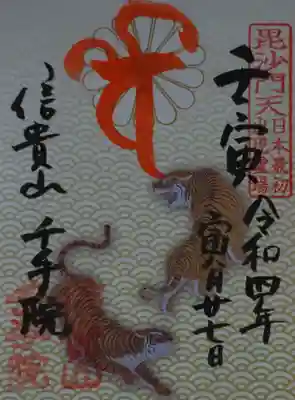 毘沙門天
日本最初
霊場
壬寅
令和四年
寅八月廿七日
信貴山
千手院